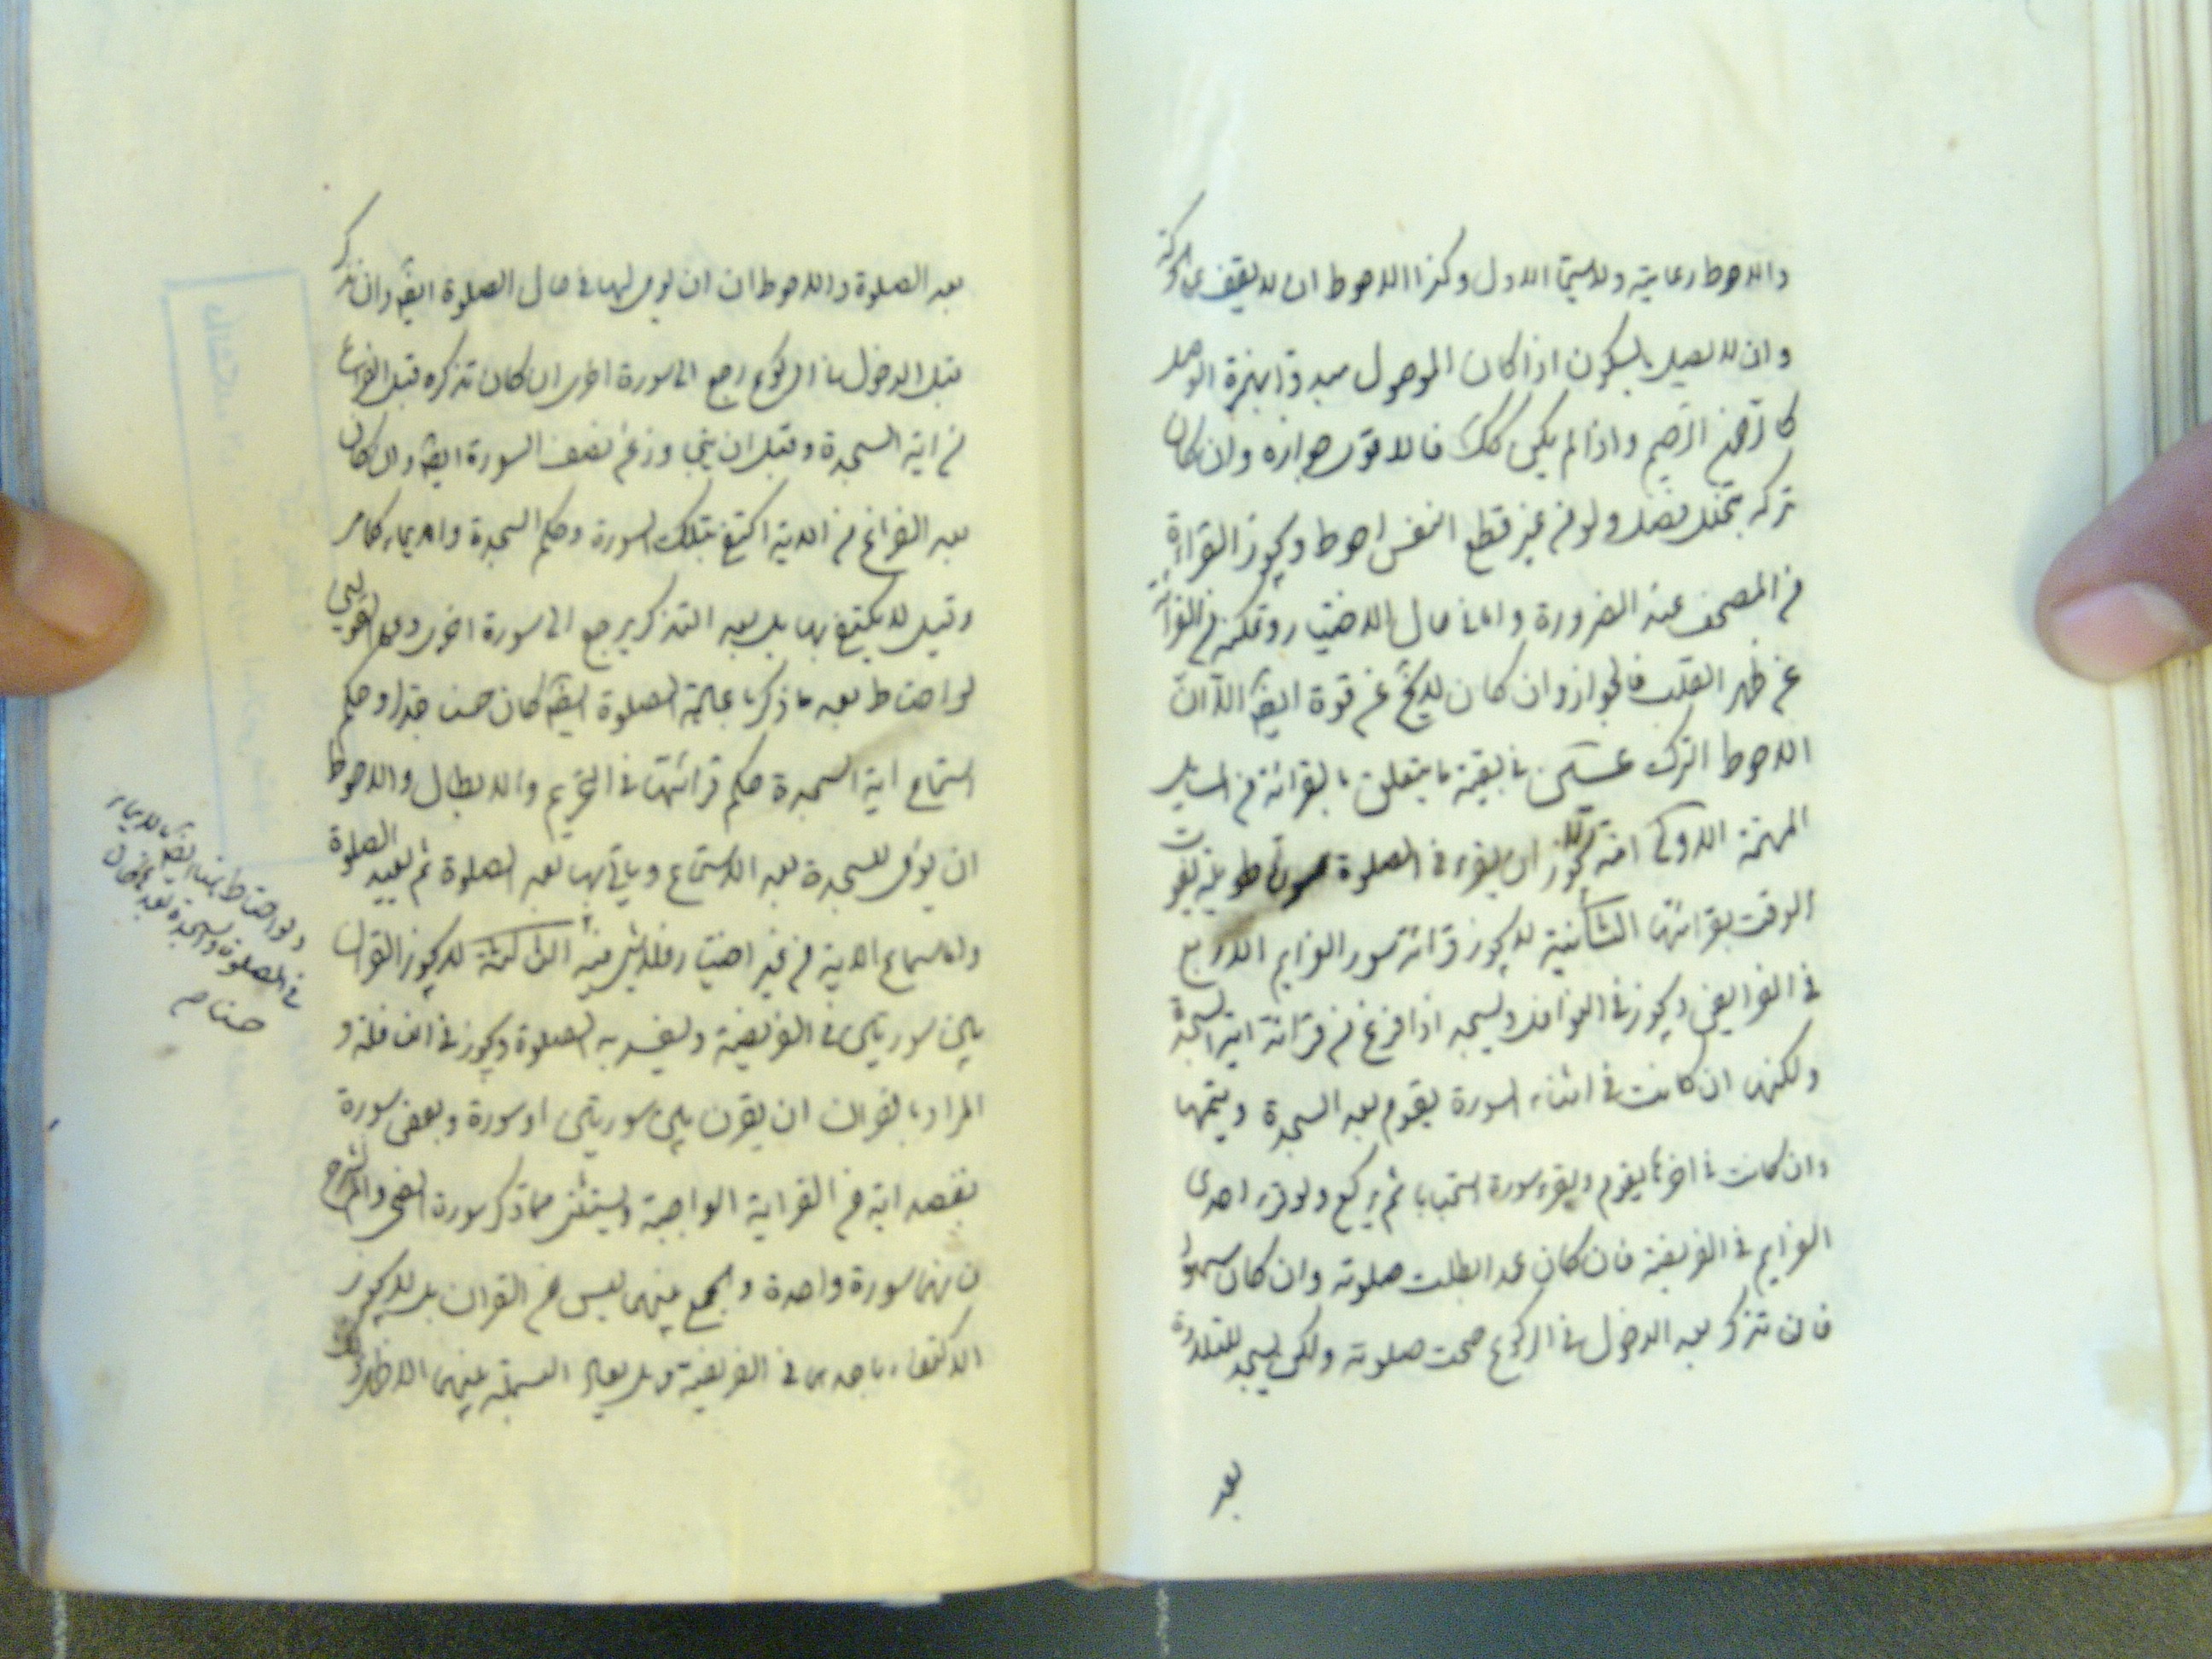 والاحوط رعايته ولاسيما الاول وكذا الاحوط ان لا يقف على الحركة
وان لا يصل بالسكون اذا كان الموصول مبدوّا بهمزة الوصل
كالرحمن الرحيم واذا لم يكن كك فالاقوى جوازه وان كان
تركه بتخلل فصل ولو من غير قطع النفس احوط ويجوز القراءة
من المصحف عند الضرورة واما فى حال الاختيار وتمكنه من القراءة
عن ظهر القلب فالجواز وان كان لا يخ عن قوة ايضا الا ان
الاحوط الترك فى بقية ما يتعلق بالقرائة من المسايل
المهمة الاولى انه لا يجوز ان يقرء فى الصلوة طويلة يفوت
الوقت بقرائتها الثانية لا يجوز قرائة سور العزايم الاربع
فى الفرايض ويجوز فى النوافل ويسجد اذا فرغ من قرائة اية السجدة
ولكنها ان كانت فى اثناء السورة يقوم بعد السجدة ويتمها
وان كانت فى اخرها يقوم ويقرء سورة استحبابا ثم يركع ولو قرء احدى
العزايم فى الفريضة فان كان عمدا بطلت صلوته وان كان سهوا
فان تذكر بعد الدخول فى الركوع صحت صلوته ولكن يسجد للتلاوة
بعد
بعد الصلوة والاحوط ان يومى لها فى حال الصلوة ايضا وان تذكر
قبل الدخول فى الركوع رجع الى سورة اخرى ان كان تذكره قبل الفراغ
من اية السجدة وقبل ان يتجاوز عن نصف السورة ايضا وان كان
بعد الفراغ من الاية اكتفى بتلك السورة وحكم السجدة والايماء كما مر
وقيل لا يكتفى بها بل بعد التذكر يرجع الى سورة اخرى وعلى القولين
لو احتاط بعد ما ذكر باعادة الصلوة ايضا كان حسنا جدا وحكم
استماع اية السجدة حكم قرائتها فى التحريم والابطال والاحوط
ان يومى للسجدة بعد الاستماع وياتى بها بعد الصلوة ثم يعيد الصلوة
واما سماع الاية من غير اختيار فلا شئ فيه الثالثة لا يجوز القران
بين سورتين فى الفريضة ويفسد به الصلوة ويجوز فى النافلة و
المراد بالقران ان يقرن بين سورتين او سورة وبعض سورة
بقصد انه من القراية الواجبة ويستثنى مما ذكر سورة الضحى والم نشرح
فانهما سورة واحدة والجمع بينهما ليس من القران بل لا يجوز
الاكتفاء باحديهما فى الفريضة وهل يعاد البسملة بينهما الاظهر
ولو احتاط ايضا بالايماء
فى الصلوة والسجدة بعدها كان
حسنا م